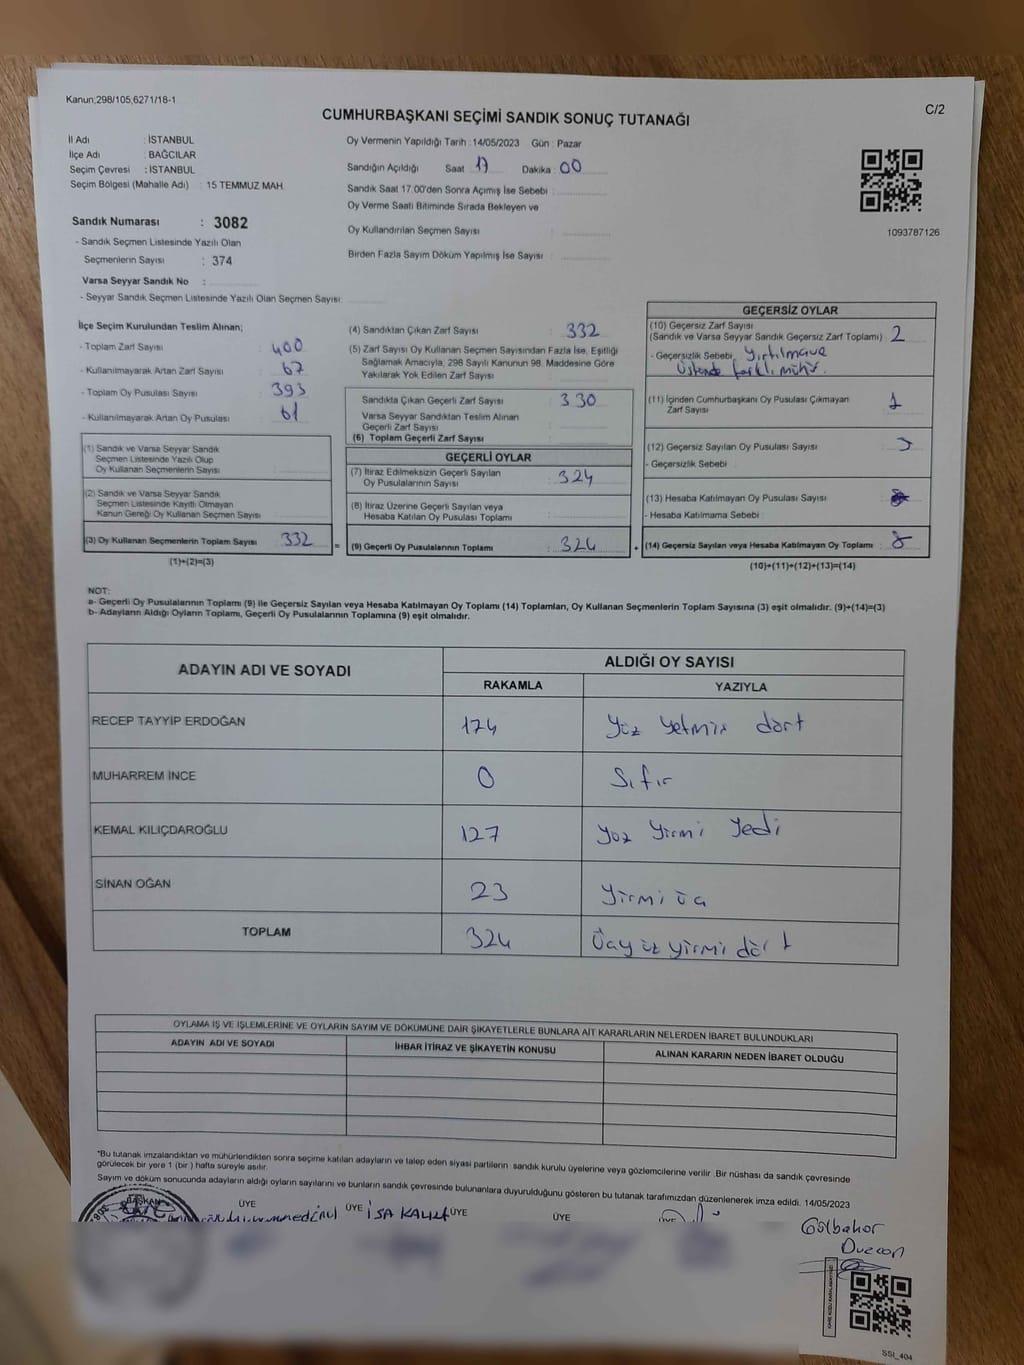 Kanun;298/105,6271/18-1
C/2
CUMHURBAŞKANI SEÇİMİ SANDIK SONUÇ TUTANAĞI
İl Adı : İSTANBUL
İlçe Adı : BAĞCILAR
Seçim Çevresi : İSTANBUL
Seçim Bölgesi (Mahalle Adı) : 15 TEMMUZ MAH.
Oy Vermenin Yapıldığı Tarih : 14/05/2023 Gün : Pazar
Sandığın Açıldığı Saat 17 Dakika : 00
Sandık Saat 17.00'den Sonra Açımış İse Sebebi :
Oy Verme Saati Bitiminde Sırada Bekleyen ve
Oy Kullandırılan Seçmen Sayısı :
Birden Fazla Sayım Döküm Yapılmış İse Sayısı :
1093787126
Sandık Numarası : 3082
- Sandık Seçmen Listesinde Yazılı Olan
Seçmenlerin Sayısı : 374
Varsa Seyyar Sandık No :
- Seyyar Sandık Seçmen Listesinde Yazılı Olan Seçmen Sayısı:
İlçe Seçim Kurulundan Teslim Alınan;
- Toplam Zarf Sayısı : 400
- Kullanılmayarak Artan Zarf Sayısı : 67
- Toplam Oy Pusulası Sayısı : 393
- Kullanılmayarak Artan Oy Pusulası : 61
(1) Sandık ve Varsa Seyyar Sandık
Seçmen Listesinde Yazılı Olup
Oy Kullanan Seçmenlerin Sayısı :
(2) Sandık ve Varsa Seyyar Sandık
Seçmen Listesinde Kayıtlı Olmayan
Kanun Gereği Oy Kullanan Seçmen Sayısı :
(3) Oy Kullanan Seçmenlerin Toplam Sayısı : 332
(1)+(2)=(3)
(4) Sandıktan Çıkan Zarf Sayısı : 332
(5) Zarf Sayısı Oy Kullanan Seçmen Sayısından Fazla İse, Eşitliği
Sağlamak Amacıyla, 298 Sayılı Kanunun 98. Maddesine Göre
Yakılarak Yok Edilen Zarf Sayısı :
Sandıkta Çıkan Geçerli Zarf Sayısı : 330
Varsa Seyyar Sandıktan Teslim Alınan
Geçerli Zarf Sayısı :
(6) Toplam Geçerli Zarf Sayısı :
GEÇERLİ OYLAR
(7) İtiraz Edilmeksizin Geçerli Sayılan
Oy Pusulalarının Sayısı : 324
(8) İtiraz Üzerine Geçerli Sayılan veya
Hesaba Katılan Oy Pusulası Toplamı :
= (9) Geçerli Oy Pusulalarının Toplamı : 324 +
GEÇERSİZ OYLAR
(10) Geçersiz Zarf Sayısı
(Sandık ve Varsa Seyyar Sandık Geçersiz Zarf Toplamı) : 2
- Geçersizlik Sebebi : yırtılmave
üstende farklı mühür.
(11) İçinden Cumhurbaşkanı Oy Pusulası Çıkmayan
Zarf Sayısı : 1
(12) Geçersiz Sayılan Oy Pusulası Sayısı :
- Geçersizlik Sebebi :
(13) Hesaba Katılmayan Oy Pusulası Sayısı :
- Hesaba Katılmama Sebebi :
(14) Geçersiz Sayılan veya Hesaba Katılmayan Oy Toplamı : 8
(10)+(11)+(12)+(13)=(14)
NOT:
a- Geçerli Oy Pusulalarının Toplamı (9) ile Geçersiz Sayılan veya Hesaba Katılmayan Oy Toplamı (14) Toplamları, Oy Kullanan Seçmenlerin Toplam Sayısına (3) eşit olmalıdır. (9)+(14)=(3)
b- Adayların Aldığı Oyların Toplamı, Geçerli Oy Pusulalarının Toplamına (9) eşit olmalıdır.
ADAYIN ADI VE SOYADI
ALDIĞI OY SAYISI
RAKAMLA YAZIYLA
RECEP TAYYİP ERDOĞAN 174 Yüz yetmiş dört
MUHARREM İNCE 0 Sıfır
KEMAL KILIÇDAROĞLU 127 Yüz Yirmi Yedi
SİNAN OĞAN 23 Yirmi üç
TOPLAM 324 Üçyüz yirmi dört
OYLAMA İŞ VE İŞLEMLERİNE VE OYLARIN SAYIM VE DÖKÜMÜNE DAİR ŞİKAYETLERLE BUNLARA AİT KARARLARIN NELERDEN İBARET BULUNDUKLARI
ADAYIN ADI VE SOYADI İHBAR İTİRAZ VE ŞİKAYETİN KONUSU ALINAN KARARIN NEDEN İBARET OLDUĞU
*Bu tutanak imzalandıktan ve mühürlendikten sonra seçime katılan adayların ve talep eden siyasi partilerin sandık kurulu üyelerine veya gözlemcilerine verilir .Bir nüshası da sandık çevresinde
görülecek bir yere 1 (bir ) hafta süreyle asılır.
Sayım ve döküm sonucunda adayların aldığı oyların sayılarını ve bunların sandık çevresinde bulunanlara duyurulduğunu gösteren bu tutanak tarafımızdan düzenlenerek imza edildi. 14/05/2023
BAŞKAN ÜYE ÜYE ÜYE ÜYE ÜYE
İSA
Gülbahar
SSI_404